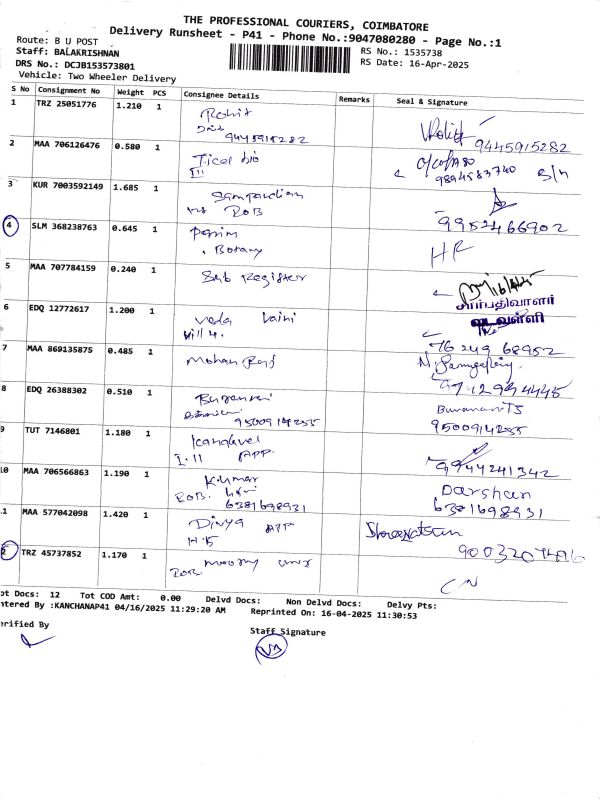 THE PROFESSIONAL COURIERS, COIMBATORE
Delivery Runsheet - P41 - Phone No.:9047080280 - Page No.:1
Route: B U POST
RS No.: 1535738
Staff: BALAKRISHNAN
RS Date: 16-Apr-2025
DRS No.: DCJB153573801
Vehicle: Two Wheeler Delivery
S No Consignment No Weight PCS Consignee Details Remarks Seal & Signature
1 TRZ 25051776 1.210 1 Rohit
9445915282 9445915282
2 MAA 706126476 0.580 1 Ticel bio
III 9894583740
3 KUR 7003592149 1.685 1
ROB 9952466902
4 SLM 368238763 0.645 1
Botany
5 MAA 707784159 0.240 1 Sub Register
சார்பதிவாளர்
6 EDQ 12772617 1.200 1 Veda Vaini
7 MAA 869135875 0.485 1 Mohan Raj
8 EDQ 26388302 0.510 1
9500914255 9500914255
9 TUT 7146801 1.180 1 Kanguvel
I.11 APP. 9944241342
10 MAA 706566863 1.190 1 K.Kumar Darshan
ROB. 6381698931 6381698931
11 MAA 577042098 1.420 1 Divya APP
H.5
12 TRZ 45737852 1.170 1
ROB
Tot Docs: 12 Tot COD Amt: 0.00 Delvd Docs: Non Delvd Docs: Delvy Pts:
Entered By :KANCHANAP41 04/16/2025 11:29:20 AM Reprinted On: 16-04-2025 11:30:53
Verified By
Staff Signature